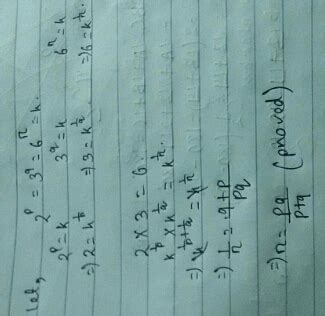 let, 2^p = 3^q = 6^n = k.
2^p = k 3^q = k 6^n = k
⇒ 2 = k^{1/p} ⇒ 3 = k^{1/q} ⇒ 6 = k^{1/n}
2 × 3 = 6.
k^{1/p} × k^{1/q} = k^{1/n}.
⇒ k^{1/p + 1/q} = k^{1/n}
⇒ 1/n = (q + p)/pq
⇒ n = pq/(p+q) (proved)